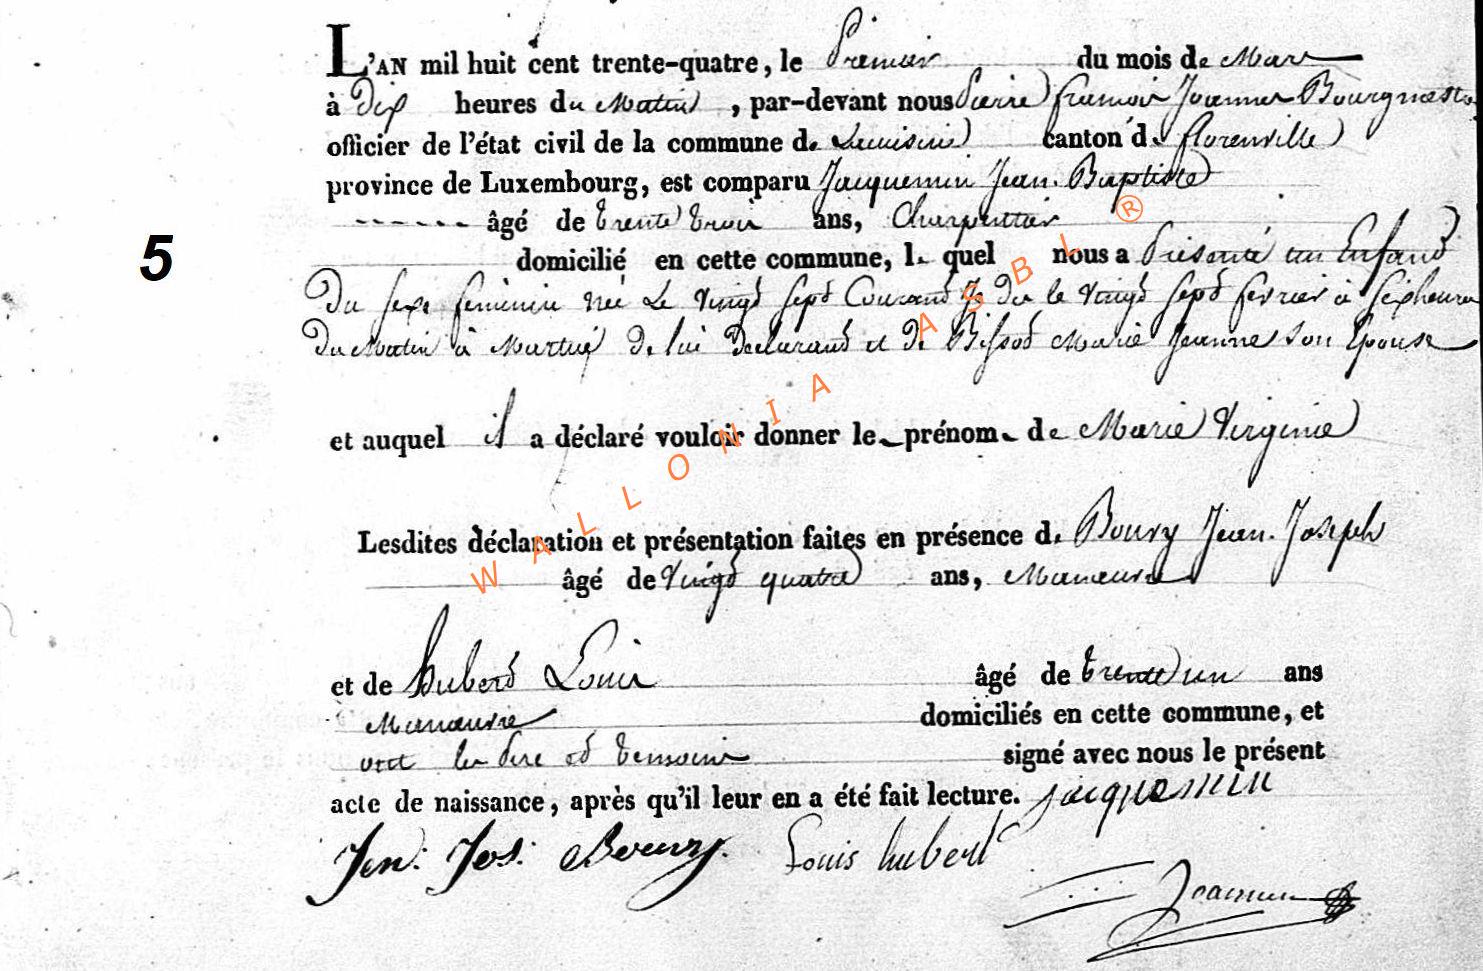 L'AN mil huit cent trente-quatre, le Premier du mois de Mars
à Dix heures du Matin, par-devant nous Pierre Bourgmestre
officier de l'état civil de la commune de canton de florenville
province de Luxembourg, est comparu Jacquemin Jean Baptiste
âgé de trente trois ans, Charpentier
5
domicilié en cette commune, lequel nous a Présenté un Enfand
Du sexe feminin née Le Vingd sepd Courand Je die le Vingd sepd fevrier à Six heures
Du Matin à Martué de lui Declarand et de Bissod Marie Jeanne son Epouse
et auquel il a déclaré vouloir donner le prénom de Marie Virginie
Lesdites déclaration et présentation faites en présence de Boury Jean Joseph
âgé de Vingd quatre ans, Manœuvre
et de huberd Louis âgé de trente un ans
Manœuvre domiciliés en cette commune, et
ont les Pere ed temoins signé avec nous le présent
acte de naissance, après qu'il leur en a été fait lecture. jacquemin
Jen: Jos: Boury. Louis hubert
Joannes
WALLONIA ASBL ®